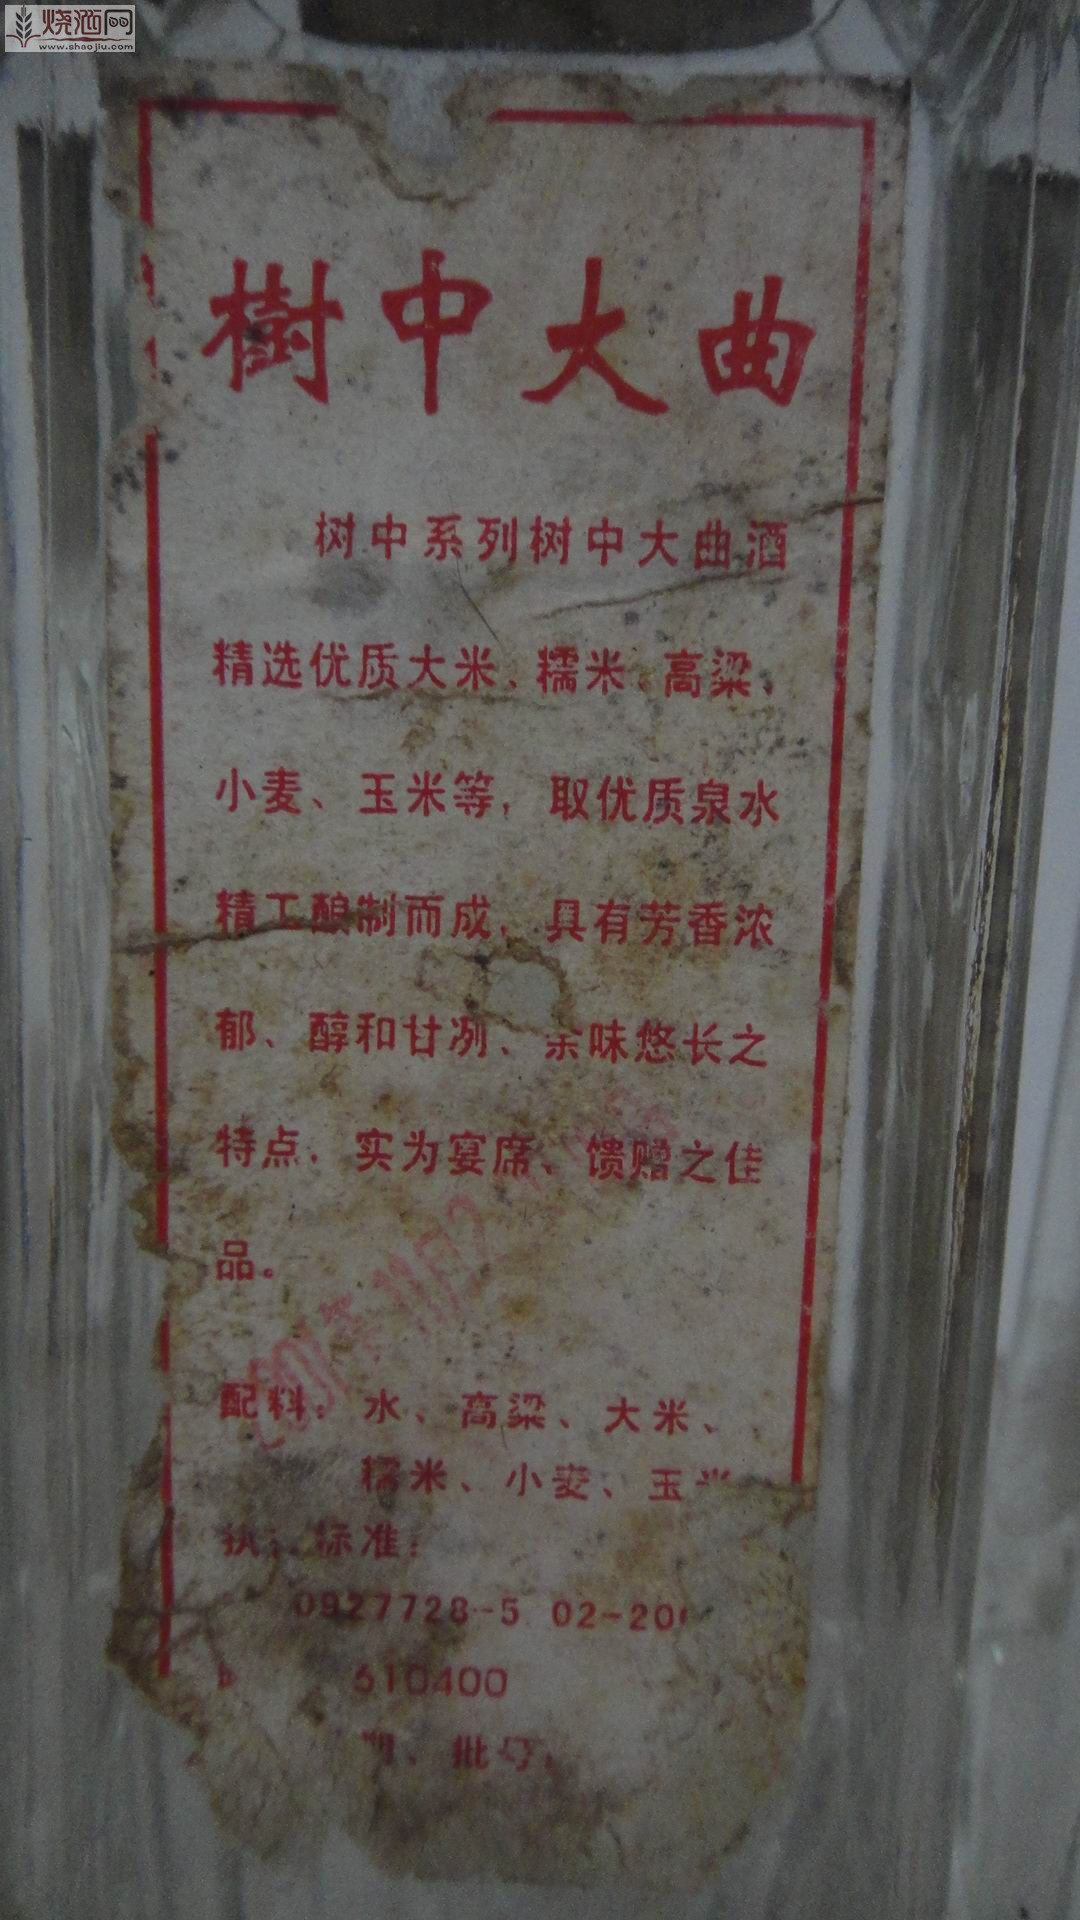 烧酒网
www.shaojiu.com
樹中大曲
树中系列树中大曲酒
精选优质大米、糯米、高粱、
小麦、玉米等，取优质泉水
精工酿制而成，具有芳香浓
郁、醇和甘冽、余味悠长之
特点，实为宴席、馈赠之佳
品。
配料：水、高粱、大米、
糯米、小麦、玉米
标准：
0927728-5 02-20
610400
期、批号